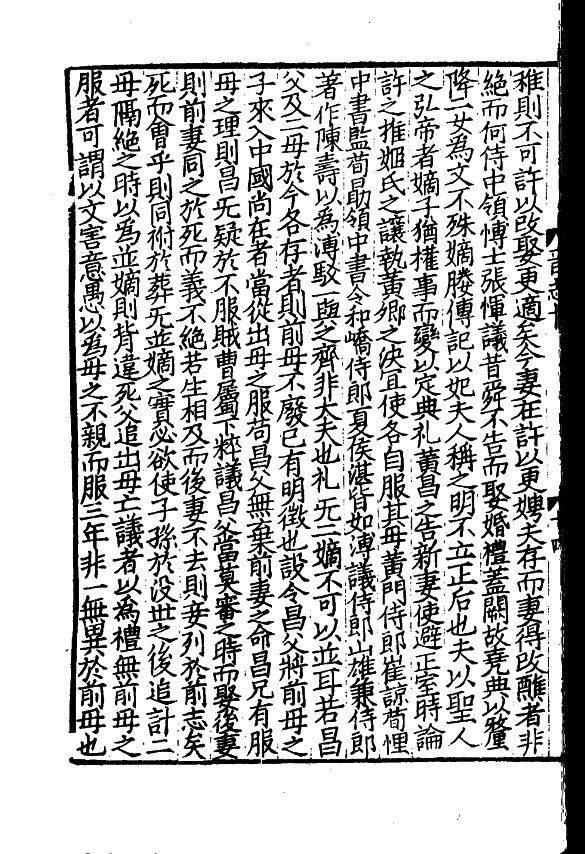 稚則不可許以改娶更適矣今妻在許以更娉夫存而妻得改醮者非
絕而何侍中領愽士張惲議昔舜不告而娶婚禮蓋闕故堯典以釐
降二女為文不殊嫡媵傳記以妃夫人稱之明不立正后也夫以聖人
之弘帝者嫡子猶權事而變以定典礼黄昌之告新妻使避正室時論
許之推姬氏之讓執黄卿之决宜使各自服其母黄門侍郎崔諒荀悝
中書監荀勗領中書令和嶠侍郎夏侯湛皆如溥議侍郎山雄兼侍郎
著作陳壽以為溥駁一與之齊非大夫也礼无二嫡不可以並耳若昌
父及二母於今各存者則前母不廢已有明徵也設令昌父將前母之
子來入中國尚在者當從出母之服苟昌父無棄前妻之命昌兄有服
母之理則昌无疑於不服賊曹屬卞粹議昌父當莫審之時而娶後妻
則前妻同之於死而義不絕若生相及而後妻不去則妾列於前志矣
死而會乎則同祔於葬无並嫡之實必欲使子孫於没世之後追計二
母隔絕之時以為並嫡則背違死父追出母亡議者以為禮無前母之
服者可謂以文害意愚以為母之不親而服三年非一無異於前母也